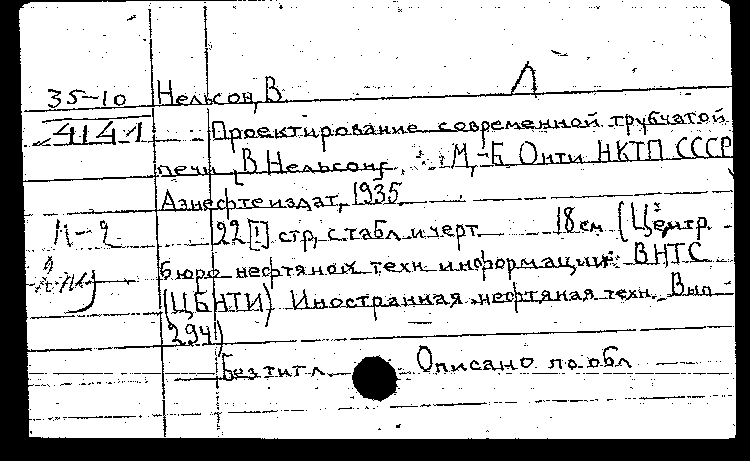 Л
35-10 Нельсон, В.
4141 Проектирование современной трубчатой
печи [В. Нельсон]. М.-Б. Онти НКТП СССР
Азнефтеиздат, 1935.
П-2 22 [1] стр., с табл. и черт. 18 см (Центр.
бюро нефтяной техн. информации ВНТС
(ЦБНТИ) Иностранная нефтяная техн. Вып.
294)
Без тит. л. Описано по обл